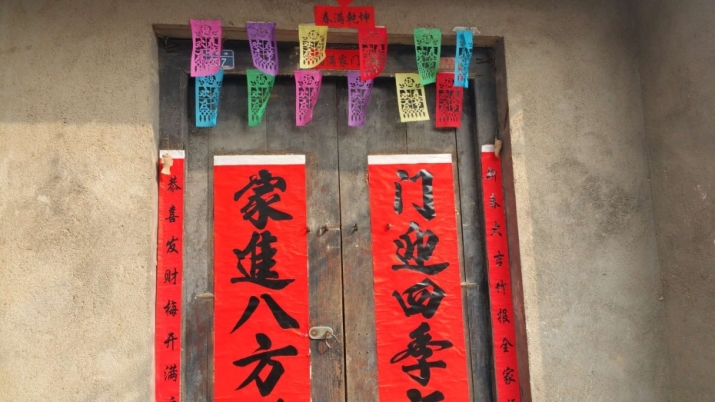 春满乾坤
满家门
恭喜发财梅开满
家進八方
门迎四季
六吉竹报全家